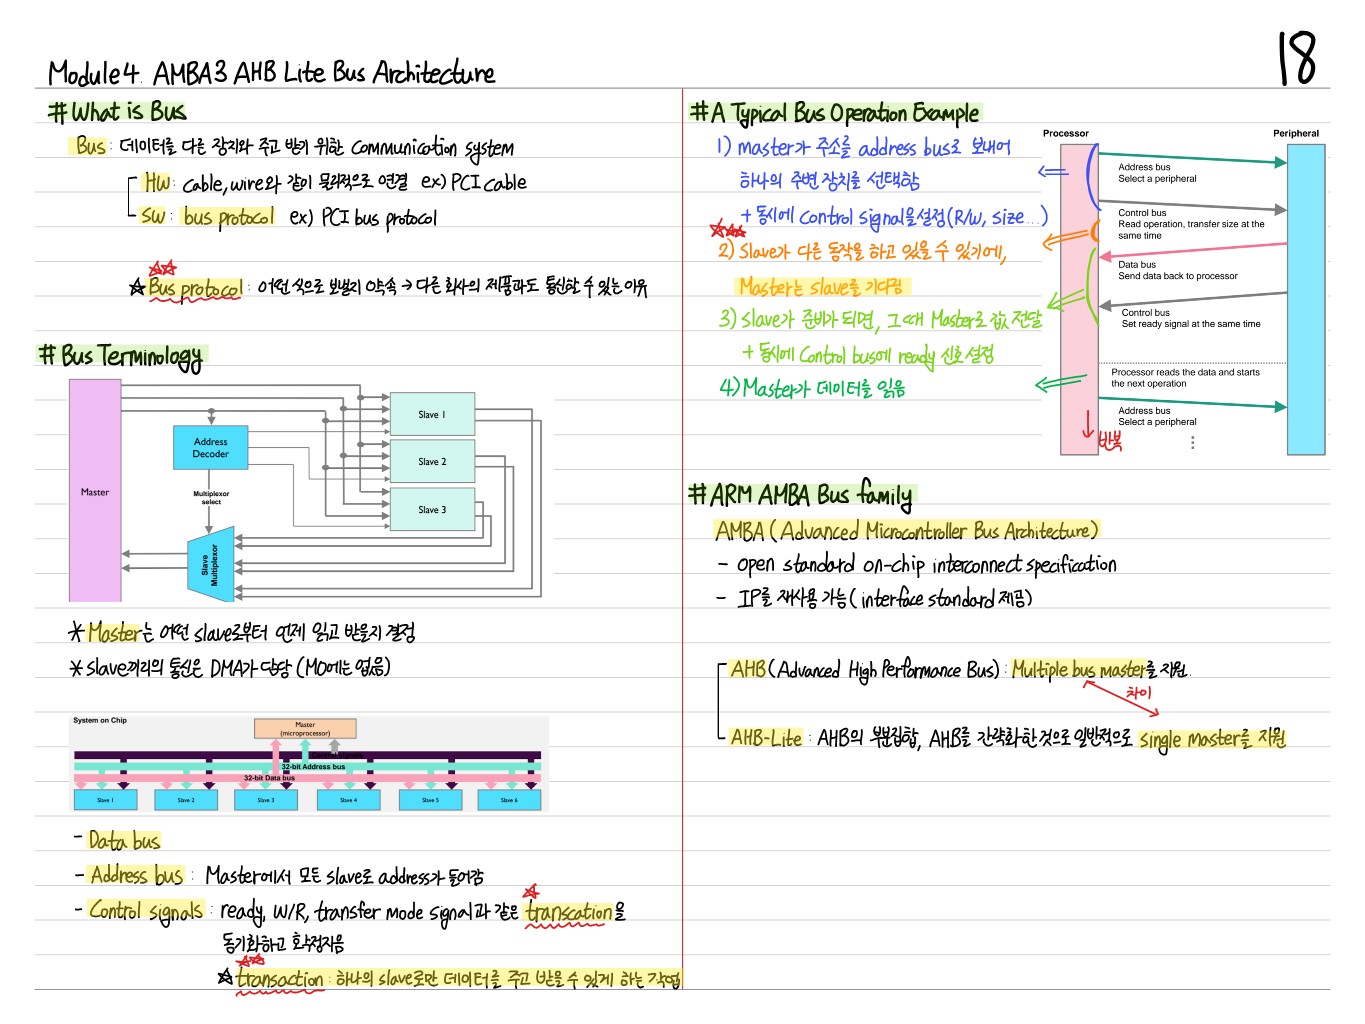 18
Module 4. AMBA3 AHB Lite Bus Architecture
# What is Bus
Bus : 데이터를 다른 장치와 주고 받기 위한 Communication system
HW : cable, wire와 같이 물리적으로 연결 ex) PCI cable
SW : bus protocol ex) PCI bus protocol
☆ Bus protocol : 어떤 식으로 보낼지 약속 → 다른 회사의 제품과도 통신할 수 있는 이유
# Bus Terminology
Master
Address Decoder
Multiplexor select
Slave Multiplexor
Slave 1
Slave 2
Slave 3
* Master는 어떤 slave로부터 언제 읽고 받을지 결정
* slave끼리의 통신은 DMA가 담당 (M0에는 없음)
System on Chip
Master
(microprocessor)
32-bit Address bus
32-bit Data bus
Slave 1
Slave 2
Slave 3
Slave 4
Slave 5
Slave 6
- Data bus
- Address bus : Master에서 모든 slave로 address가 들어감
- Control signals : ready, W/R, transfer mode signal과 같은 transcation을
동기화하고 확정지음
☆ transaction : 하나의 slave로만 데이터를 주고 받을 수 있게 하는 작업
# A Typical Bus Operation Example
1) master가 주소를 address bus로 보내어
하나의 주변 장치를 선택함
+ 동시에 Control signal을 설정(R/W, size...)
2) Slave가 다른 동작을 하고 있을 수 있기에,
Master는 slave를 기다림
3) Slave가 준비가 되면, 그때 Master로 값 전달
+ 동시에 Control bus에 ready 신호 설정
4) Master가 데이터를 읽음
Processor
Peripheral
Address bus
Select a peripheral
Control bus
Read operation, transfer size at the
same time
Data bus
Send data back to processor
Control bus
Set ready signal at the same time
Processor reads the data and starts
the next operation
Address bus
Select a peripheral
반복
# ARM AMBA Bus family
AMBA (Advanced Microcontroller Bus Architecture)
- open standard on-chip interconnect specification
- IP를 재사용 가능 (interface standard 제공)
AHB (Advanced High Performance Bus) : Multiple bus master를 지원.
차이
AHB-Lite : AHB의 부분집합, AHB를 간략화한 것으로 일반적으로 single master를 지원